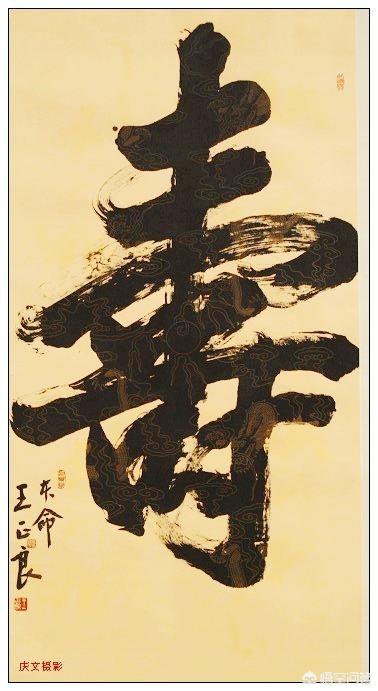 寿
东命
王正良
庆文摄影
悟空问答